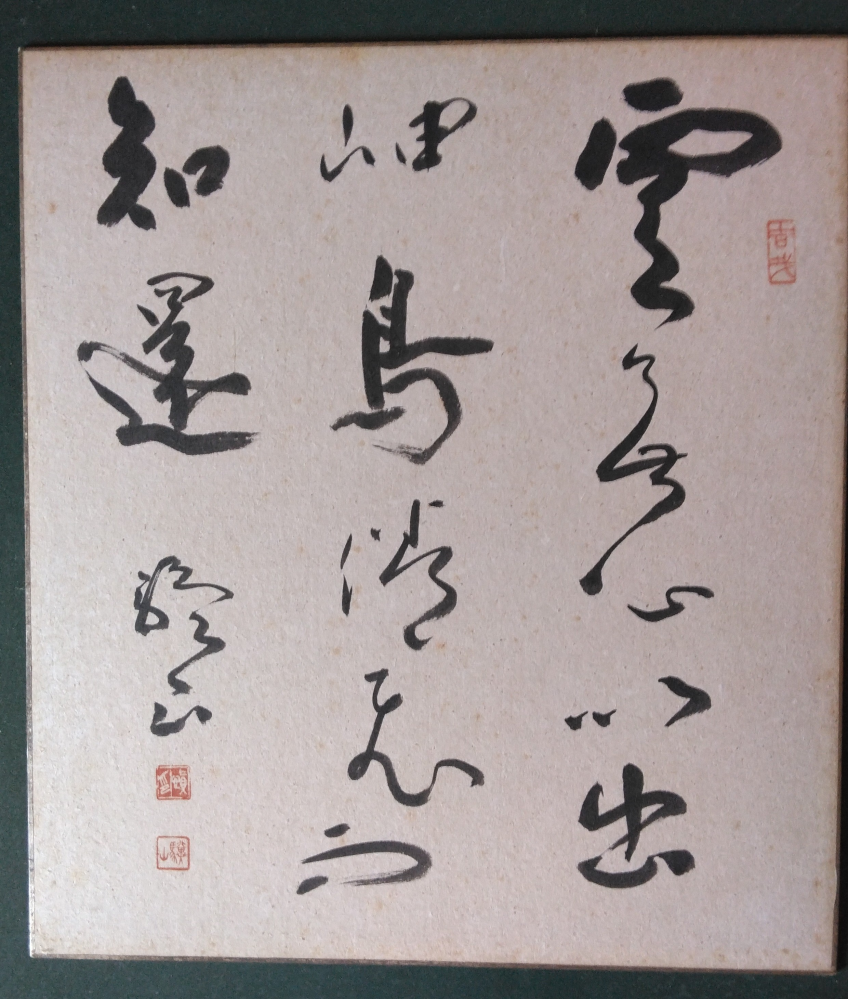 雲無心以出
岫鳥倦飛而
知還